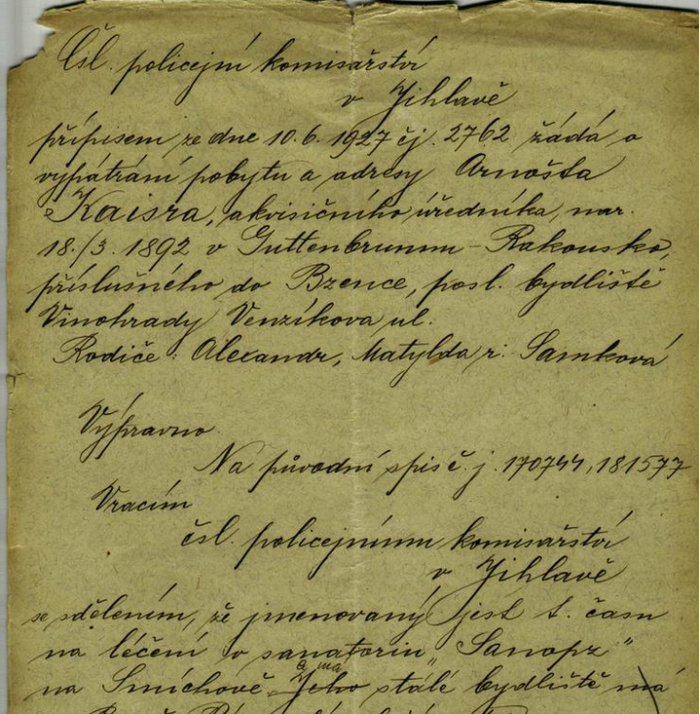 Čsl. policejní komisařství
v Jihlavě
přípisem ze dne 10.6.1927 čj. 2762 žádá o
vypátrání pobytu a adresy Arnošta
Kaisra, akvisičního úředníka, nar.
18./3. 1892 v Guttenbrunnu - Rakousko,
příslušného do Bzence, posl. bydliště
Vinohrady Venzíkova ul.
Rodiče: Alexandr, Matylda r. Samková
Výpravno
Na původní spis č. j. 170744, 181577
Vracím
čsl. policejnímu komisařství
v Jihlavě
se sdělením, že jmenovaný jest t. času
na léčení v sanatoriu „Sanopz"
a má
na Smíchově Jeho stálé bydliště má